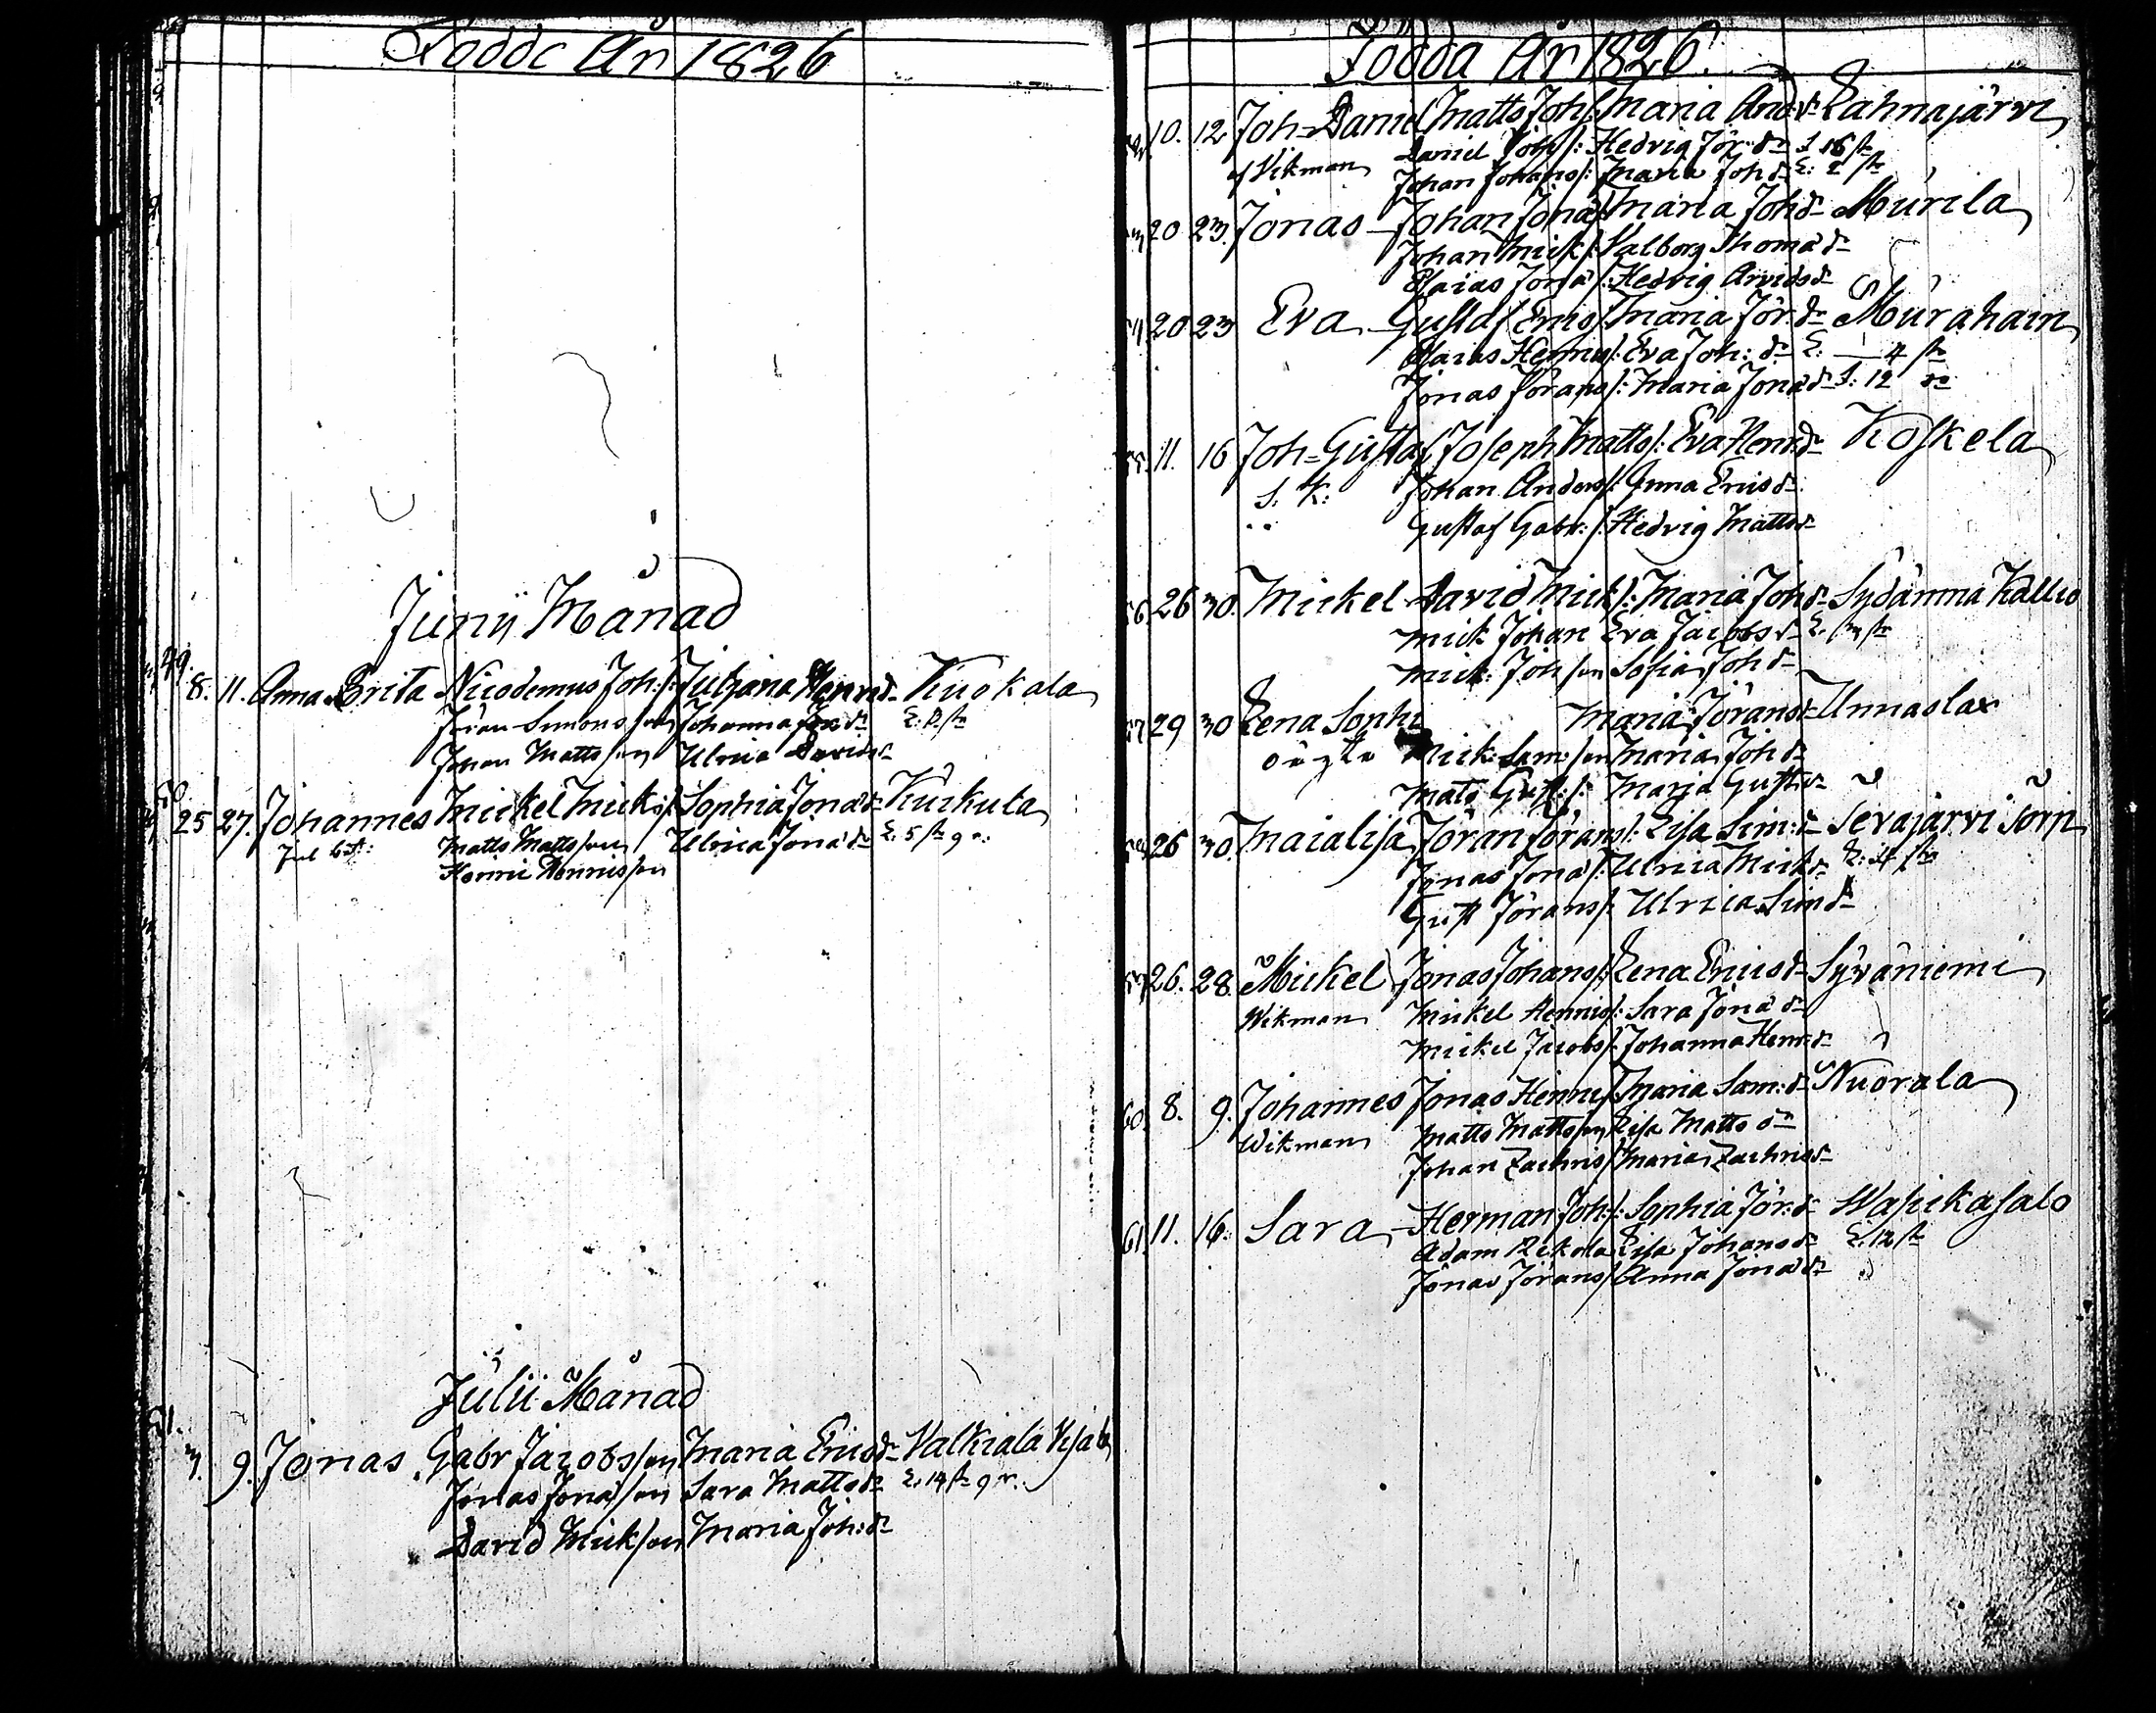 Födde År 1826
Junij Månad
49. 8. 11. Anna Brita Nicodemus Joh:s: Juliana Henrsdr Kuokala
Jöran Simonsson Johanna Jör dr
Johan Matts son Ulrica Davidsdr
50 25 27. Johannes Mickel Micks: Sophia Jona dr Kuikuta
Matts Mattsson Ulrica Jona dr L: 5 st 9 r:
Henric Henricsson
Julii Månad
51. 3. 9. Jonas Gabr Jacobsson Maria Ericsdr Valkiala
Jonas Jona son Sara Matts dr L: 14 st 9 r.
David Mickson Maria Joh: dr
Födda År 1826.
10. 12 Joh= Daniel Matts Joh s: Maria And: dr Lahnajärvi
af Vikman Daniel Joh s: Hedvig Jör: dr 16 st
Johan Johans: Maria Joh dr L: 2 st
20 23. Jonas Johan Jona s Maria Joh dr Murila
Johan Mick s: Valborg Thoma dr
Esaias Jona s: Hedvig Arvids dr
20 23 Eva Gustaf Erics Maria Jör: dr Murahain
Esaias Henrics: Eva Joh: dr L: 4 st
Jonas Jörans: Maria Jona dr 12
55. 11. 16 Joh= Gustaf Joseph Matts: Eva Henr: dr Koskela
Johan Anders: Anna Erics dr
Gustaf Gabr: s: Hedvig Matts dr
56 26 30. Mickel David Mick s: Maria Joh dr Sydänma Kallio
Mick Johan Eva Jacobs dr
Mick: Joh son Sofia Joh dr
57 29 30 Lena Sophi Maria Jörans dr Unnaslax
oägta Mick: Sam: son Maria Joh dr
Mats Gust: s: Maria Gusts dr
58 26 30. Maialisa Jöran Jörans: Lisa Sim: dr Sevajärvi
Jonas Jona s: Ulrica Micks dr L: 4 st
Gust Jörans: Ulrica Sim dr
59 26. 28. Mickel Jonas Johans: Lena Erics dr Syväniemi
Wikman Mickel Henrics: Sara Jona dr
Mickel Jacobs: Johanna Henr: dr
60. 8. 9. Johannes Jonas Henrics Maria Sam: dr Nuorala
Wikman Matts Mattsson Lisa Matts dr
Johan Zachris s Maria Zachris dr
61. 11. 16. Sara Herman Joh: s: Sophia Jör: dr Wasikasalo
Adam Lisa Johans dr L: 12 st
Jonas Jörans: Anna Jona dr